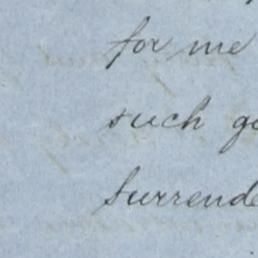 for me
such go
surrende